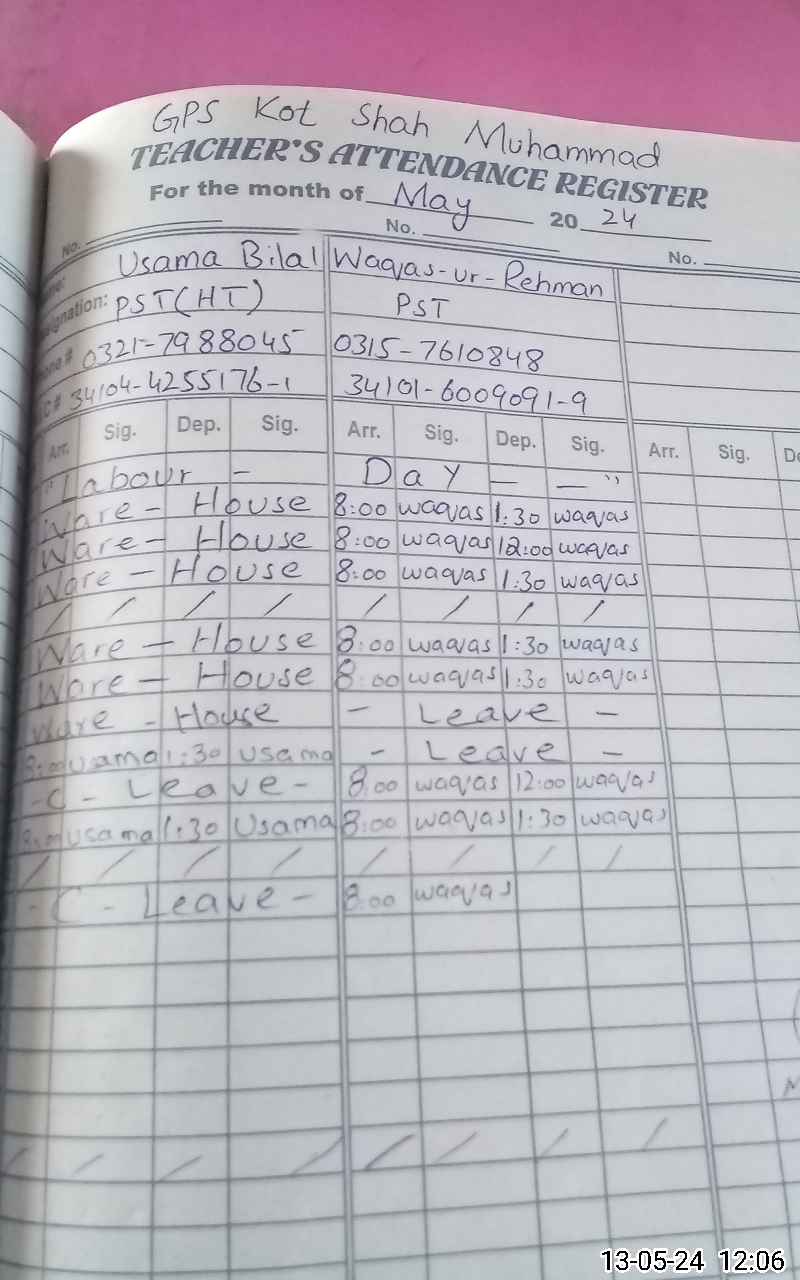 GPS Kot Shah Muhammad
TEACHER'S ATTENDANCE REGISTER
For the month of May 20 24
No. No. No.
Usama Bilal Waqas-ur-Rehman
PST(HT) PST
0321-7988045 0315-7610848
34104-4255176-1 34101-6009091-9
Arr. Sig. Dep. Sig. Arr. Sig. Dep. Sig. Arr. Sig.
Labour - Day - - "
Ware - House 8:00 waqas 1:30 waqas
Ware - House 8:00 waqas 12:00 waqas
Ware - House 8:00 waqas 1:30 waqas
/ / / / / / / /
Ware - House 8:00 waqas 1:30 waqas
Ware - House 8:00 waqas 1:30 waqas
Ware - House - Leave -
8:00 usama 1:30 usama - Leave -
- C - Leave - 8:00 waqas 12:00 waqas
8:00 usama 1:30 Usama 8:00 waqas 1:30 waqas
/ / / / / / / /
- C - Leave - 8:00 waqas
/ / / / / / / /
13-05-24 12:06